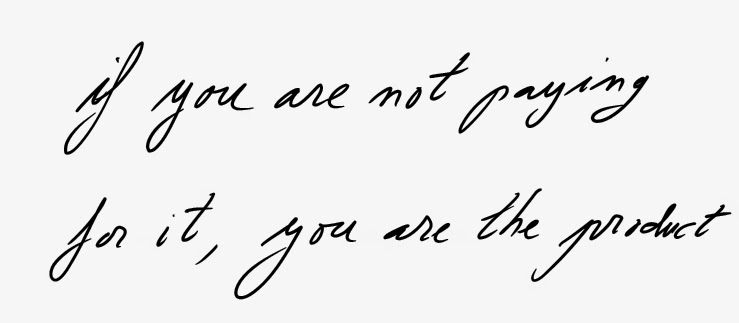 if you are not paying
for it, you are the product